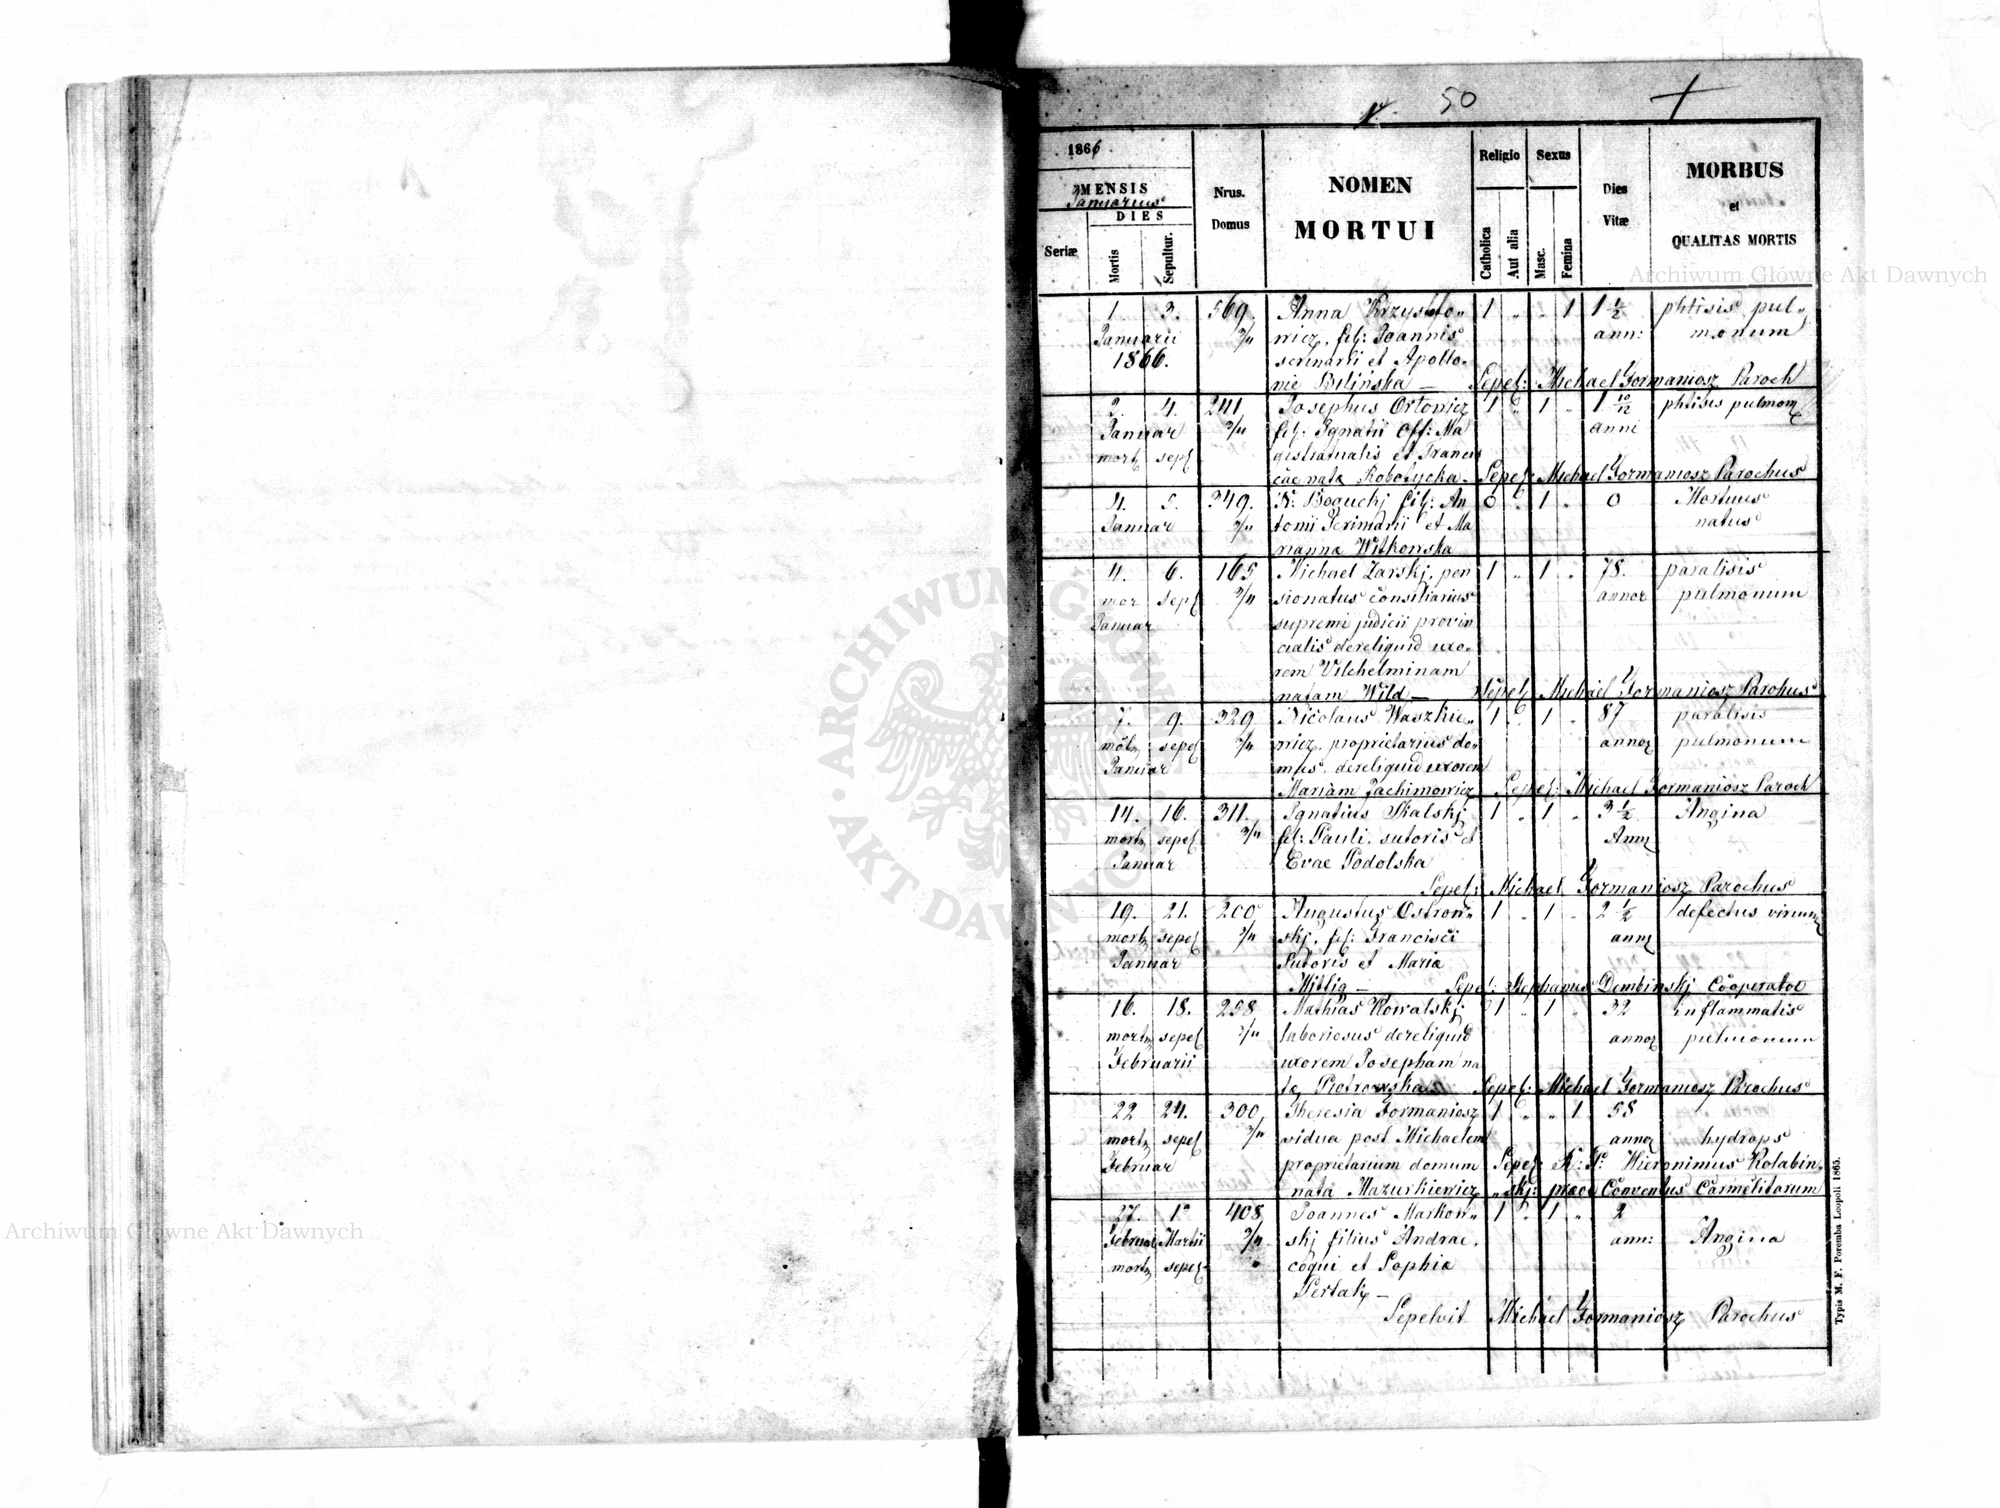 50
1866
MENSIS
Januarius
DIES
Seriæ
Mortis
Sepultur.
Nrus.
Domus
NOMEN
MORTUI
Religio
Catholica
Aut alia
Sexus
Masc.
Femina
Dies
Vitæ
MORBUS
et
QUALITAS MORTIS
Archiwum Główne Akt Dawnych
1. 3. 569. Anna Krzysto- 1 „ „ 1 1 ½ phtisis pul-
Januarii wicz, fil: Joannis ann: monum
1866. scrinarii et Apollo-
nie Bilińska — Sepel: Michael Gormaniosz Paroch
4. 241. Josephus Ortowicz 1 „ 1 „ 1 10/12 phtisis pulmon
Januar fil: Ignatii Off: Ma anni
mort sepel gistratualis et Francis
cae nata Robotycka. Sepel: Michael Gormaniosz Parochus
4. 5. 349. N: Boguckj fil: An 0 „ 1 „ 0 Mortuus
Januar tonii Scrinarii et Ma natus
rianna Witkowska
4. 6. 165 Michael Zarskj, pen 1 „ 1 „ 78. paralisis
mor sepel sionatus consiliarius annor pulmonum
Januar supremi judicii provin
cialis dereliquid uxo-
rem Vilhelminam
natam Wild — Sepel Michael Gormaniosz Parohus
7. 9. 329 Nicolaus Waszkie- 1 „ 1 „ 87 paralisis
sepel wicz, proprietarius do- annor pulmonum
Januar mus, dereliquid uxorem
Mariam Jachimowicz Sepel: Michael Gormaniosz Paroch
14. 16. 311. Ignatius Skalskj 1 „ 1 „ 3 ½ Angina
mort sepel fil: Pauli, sutoris et Ann
Januar Evae Podolska
Sepel: Michael Gormaniosz Parochus
19. 21. 200 Augustus Ostrow- 1 „ 1 „ 2 ½ defectus virium
mort sepel skj, fil: Francisci ann
Januar Sutoris et Maria
Mittig — Sepel: Stephanus Dembinskj Cooperator
16. 18. 258 Mathias Kowalskj 1 „ 1 „ 32 inflammatis
mort sepel laboriosus dereliquid annor pulmonum
Februarii uxorem Josepham na
ta Piotrowska Sepel: Michael Gormaniosz Parochus
22 24. 300 Theresia Gormaniosz 1 „ „ 1 58
mort sepel vidua post Michaelem annor hydrops
Februar proprietarium domum Sepel R: P: Hieronimus Kolabin
nata Mazurkiewicz „skj: Conventus Carmelitarum
27. 1ª 408 Joannes Markow- 1 „ 1 „ 2
Februar Martii skj filius Andrae, ann: Angina
mort sepel coqui et Sophia
Sertak —
Sepelvit Michael Gormaniosz Parochus
Typis M. F. Poremba Leopoli 1865.
Archiwum Główne Akt Dawnych
ARCHIWUM GŁÓWNE AKT DAWNYCH